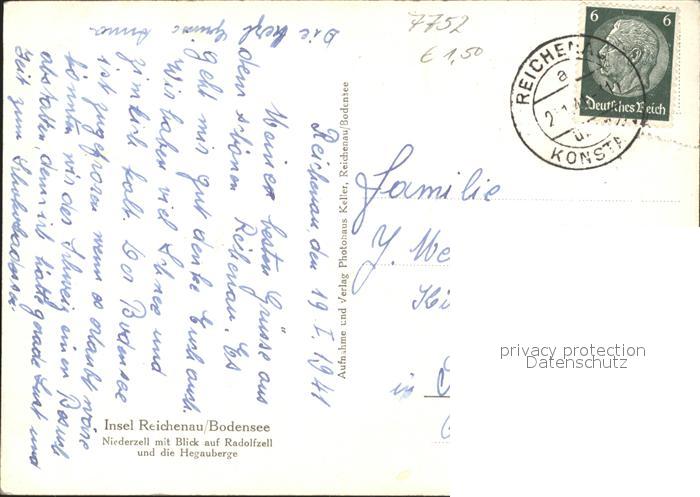 7752
€ 1,50
6 6
Deutsches Reich
REICHENAU
a
KONSTA
Reichenau, den 19. I. 1941
Meinen besten Grüsse aus
dem schönen Reichenau. Es
geht mir gut denke Euch auch.
Wir haben viel Schnee und
ziemlich kalt. Der Bodensee
ist zugefroren wenn es erlaubt wäre
könnten wir der Schweiz einen Besuch
abstatten, denn ich hätte gerade Lust und
Zeit zum
Die herzl
Anna
Aufnahme und Verlag Photohaus Keller, Reichenau/Bodensee
Familie
J. We
in
Insel Reichenau/Bodensee
Niederzell mit Blick auf Radolfzell
und die Hegauberge
privacy protection
Datenschutz